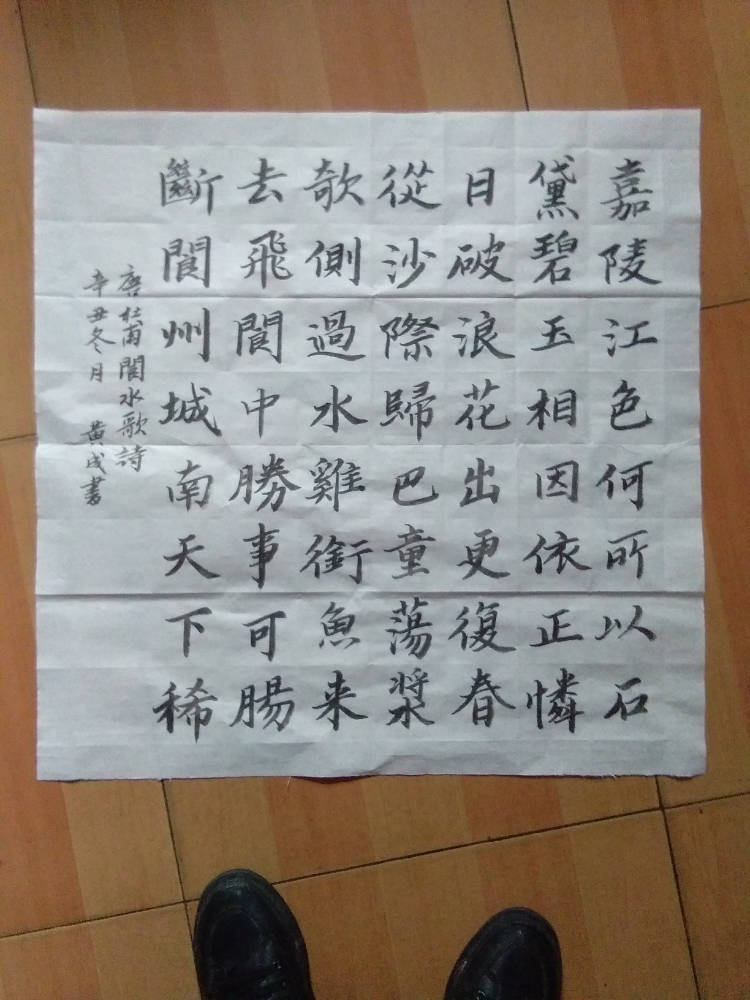 嘉陵江色何所以石
黛碧玉相因依正憐
日破浪花出更復春
從沙際歸巴童蕩漿
欹側過水雞銜魚来
去飛閬中勝事可腸
斷閬州城南天下稀
唐杜甫閬水歌詩
辛丑冬月 黄成書